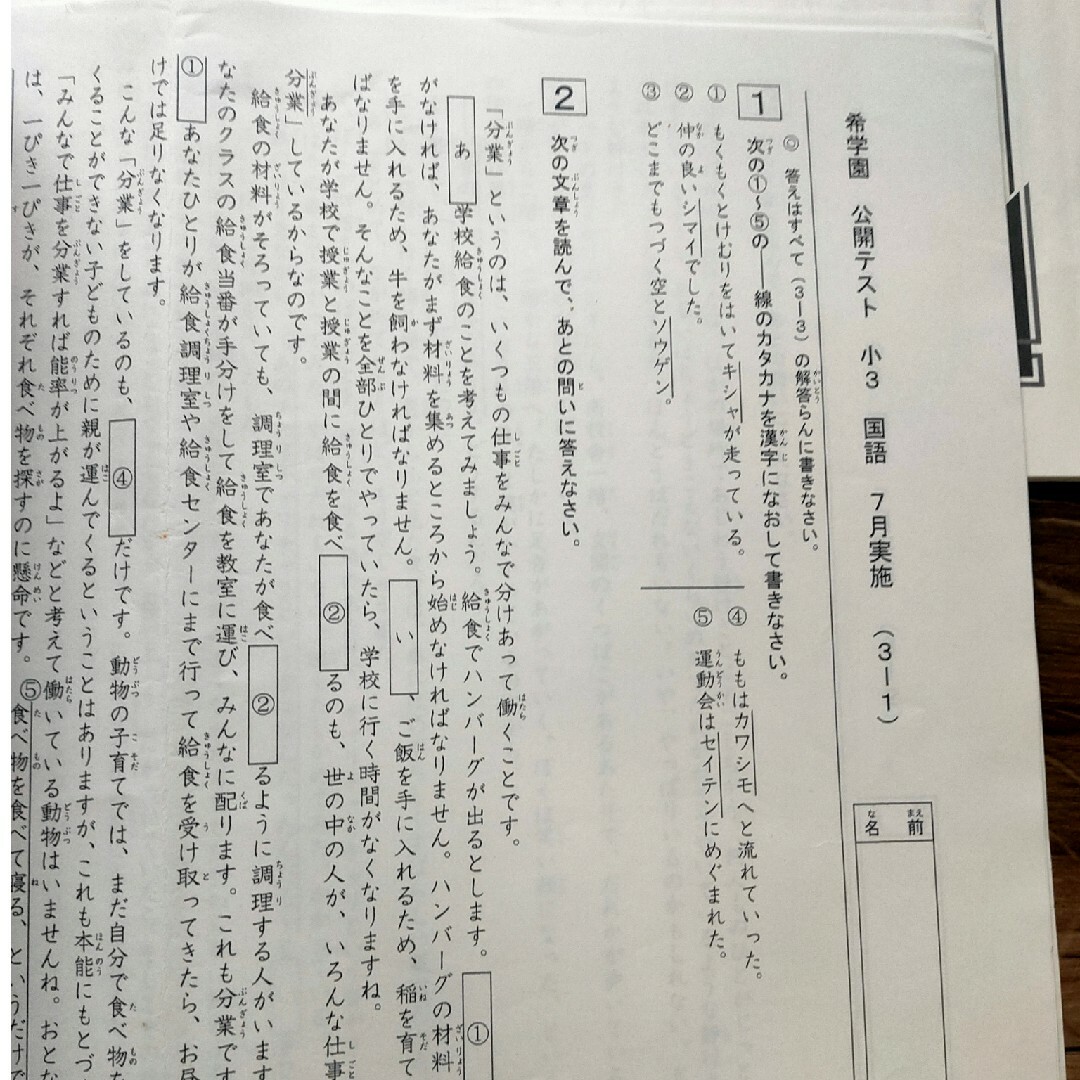 希学園 公開テスト 小3 国語 7月実施 (3―1)
名前
◎ 答えはすべて(3―3)の解答らんに書きなさい。
1 次の①~⑤の――線のカタカナを漢字になおして書きなさい。
① もくもくとけむりをはいてキシャが走っている。
② 仲の良いシマイでした。
③ どこまでもつづく空とソウゲン。
④ ももはカワシモへと流れていった。
⑤ 運動会はセイテンにめぐまれた。
2 次の文章を読んで、あとの問いに答えなさい。
「分業」というのは、いくつもの仕事をみんなで分けあって働くことです。
あ 学校給食のことを考えてみましょう。給食でハンバーグが出るとします。 ①
がなければ、あなたがまず材料を集めるところから始めなければなりません。ハンバーグの材料
を手に入れるため、牛を飼わなければなりません。 い 、ご飯を手に入れるため、稲を育て
ばなりません。そんなことを全部ひとりでやっていたら、学校に行く時間がなくなりますね。
あなたが学校で授業と授業の間に給食を食べ ② るのも、世の中の人が、いろんな仕事
分業」しているからなのです。
給食の材料がそろっていても、調理室であなたが食べ ② るように調理する人がいます
なたのクラスの給食当番が手分けをして給食を教室に運び、みんなに配ります。これも分業です
① あなたひとりが給食調理室や給食センターにまで行って給食を受け取ってきたら、お昼
けでは足りなくなります。
こんな「分業」をしているのも、 ④ だけです。動物の子育てでは、まだ自分で食べ物を
くることができない子どものために親が運んでくるということはありますが、これも本能にもとづ
「みんなで仕事を分業すれば能率が上がるよ」などと考えて働いている動物はいませんね。おとな
は、一ぴき一ぴきが、それぞれ食べ物を探すのに懸命です。⑤食べ物を食べて寝る、というだけで